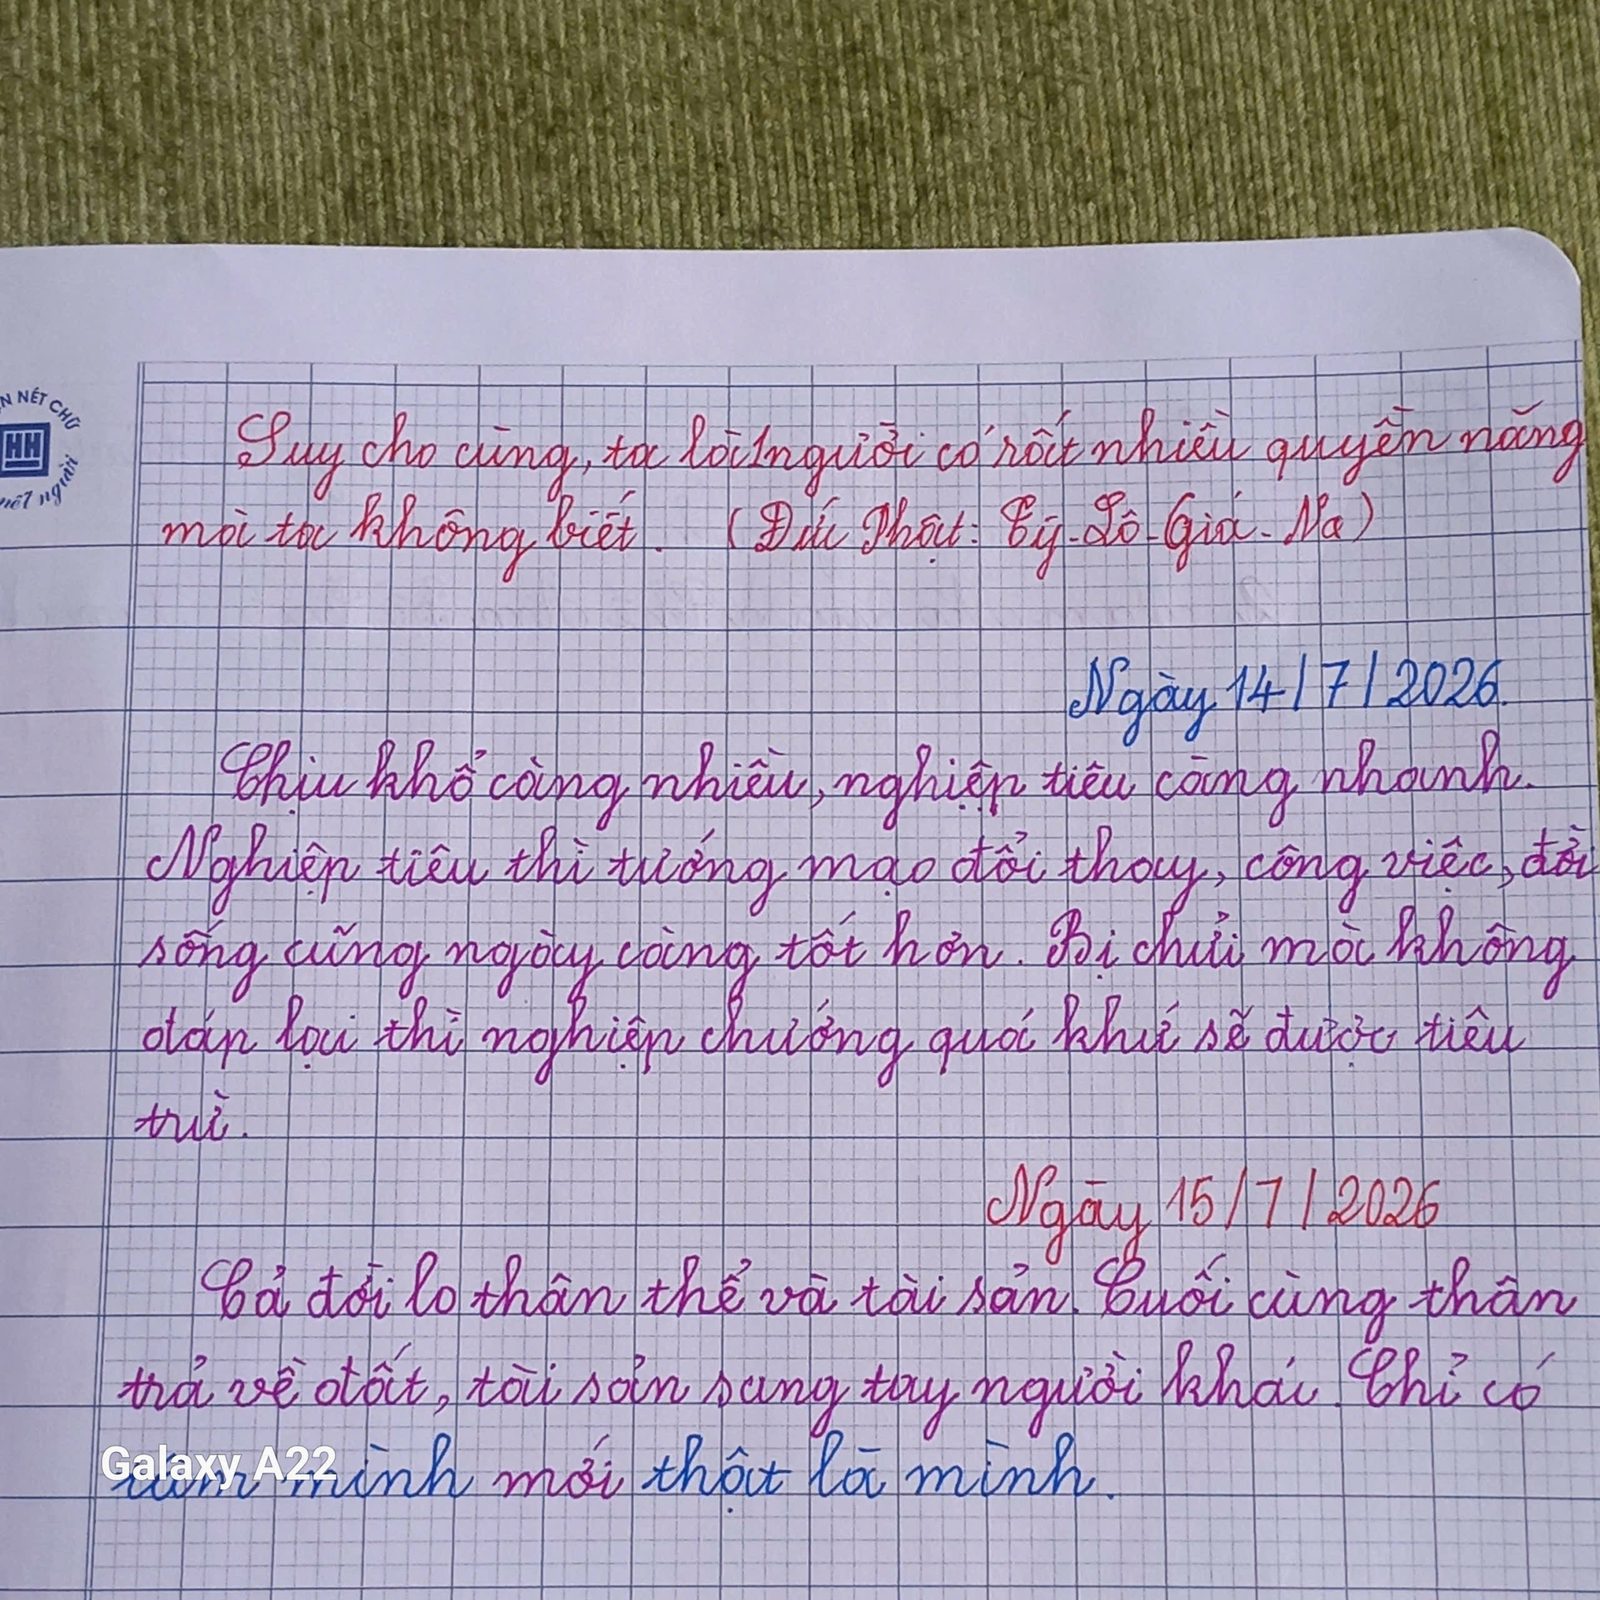 N NÉT CHỮ
HH
nết người
Suy cho cùng, ta là 1 người có rất nhiều quyền năng
mà ta không biết. (Đức Phật: Tỳ-Lô-Giá-Na)
Ngày 14/7/2026.
Chịu khổ càng nhiều, nghiệp tiêu càng nhanh.
Nghiệp tiêu thì tướng mạo đổi thay, công việc, đời
sống cũng ngày càng tốt hơn. Bị chửi mà không
đáp lại thì nghiệp chướng quá khứ sẽ được tiêu
trừ.
Ngày 15/7/2026
Cả đời lo thân thể và tài sản. Cuối cùng thân
trả về đất, tài sản sang tay người khác. Chỉ có
Galaxy A22
tâm mình mới thật là mình.